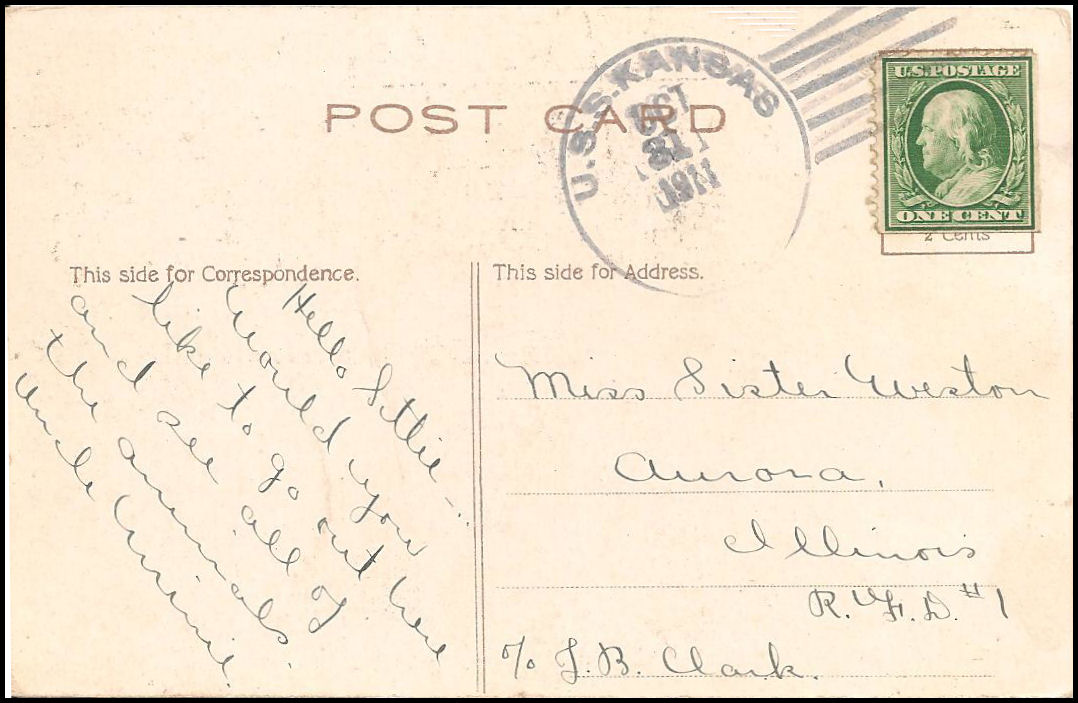 POST CARD
U.S.S. KANSAS
OCT
31
1911
U.S. POSTAGE
ONE CENT
2 Cents
This side for Correspondence.
Hello Sittie—
Would you
like to go out here
and see all of
the animals.
Uncle
This side for Address.
Miss Sister Weston
Aurora,
Illinois
R.F.D. #1
c/o J.B. Clark.